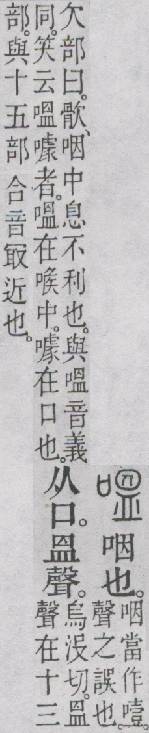 咽也。
咽當作噎。
聲之誤也。
欠部曰。㰲、咽中息不利也。與嗢音義
同。笑云嗢噱者。嗢在喉中。噱在口也。
从口。𥁕聲。
烏沒切。𥁕
聲在十三
部。與十五部合音冣近也。